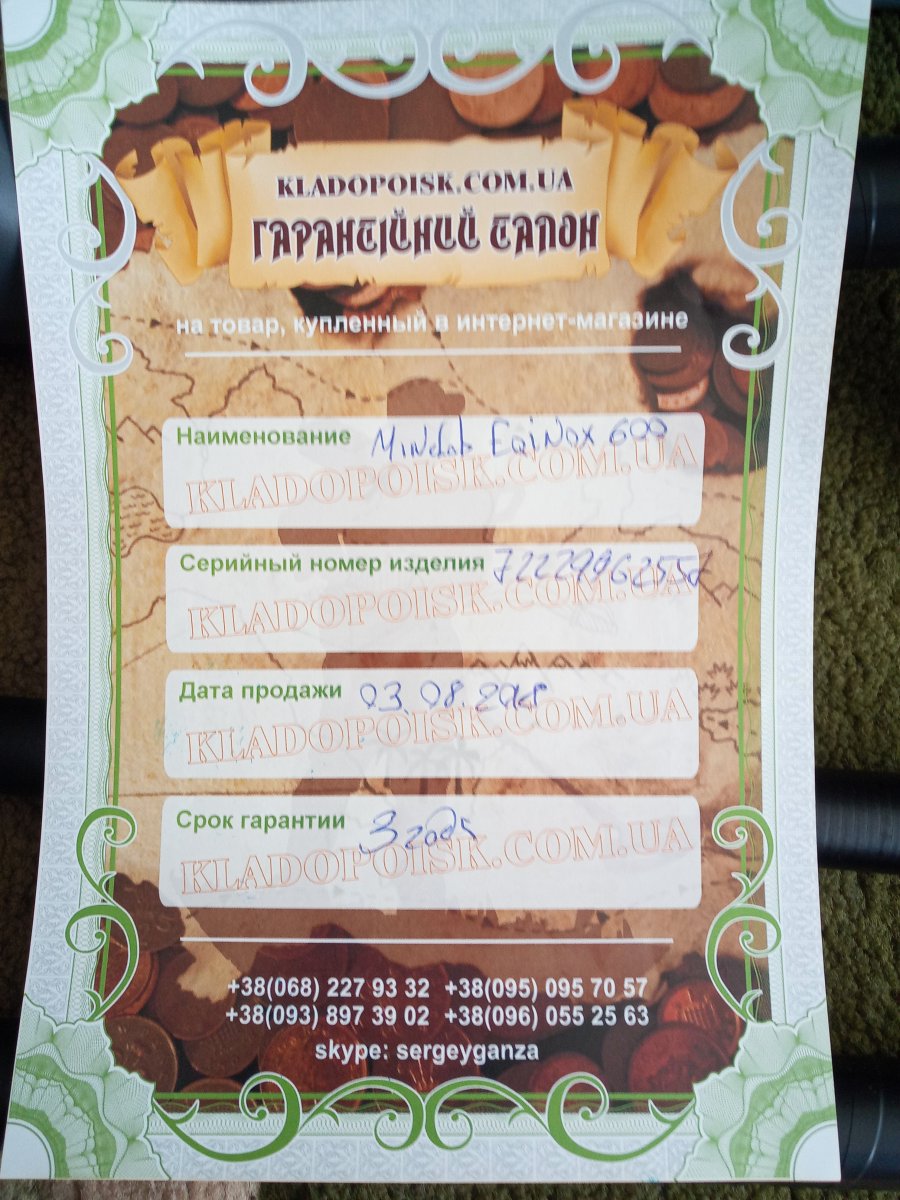 KLADOPOISK.COM.UA
ГАРАНТІЙНИЙ ТАЛОН
на товар, купленный в интернет-магазине
Наименование Minelab EqiNox 600
KLADOPOISK.COM.UA
Серийный номер изделия
KLADOPOISK.COM.UA
Дата продажи 03.08.2018
KLADOPOISK.COM.UA
Срок гарантии 3 года
KLADOPOISK.COM.UA
+38(068) 227 93 32 +38(095) 095 70 57
+38(093) 897 39 02 +38(096) 055 25 63
skype: sergeyganza